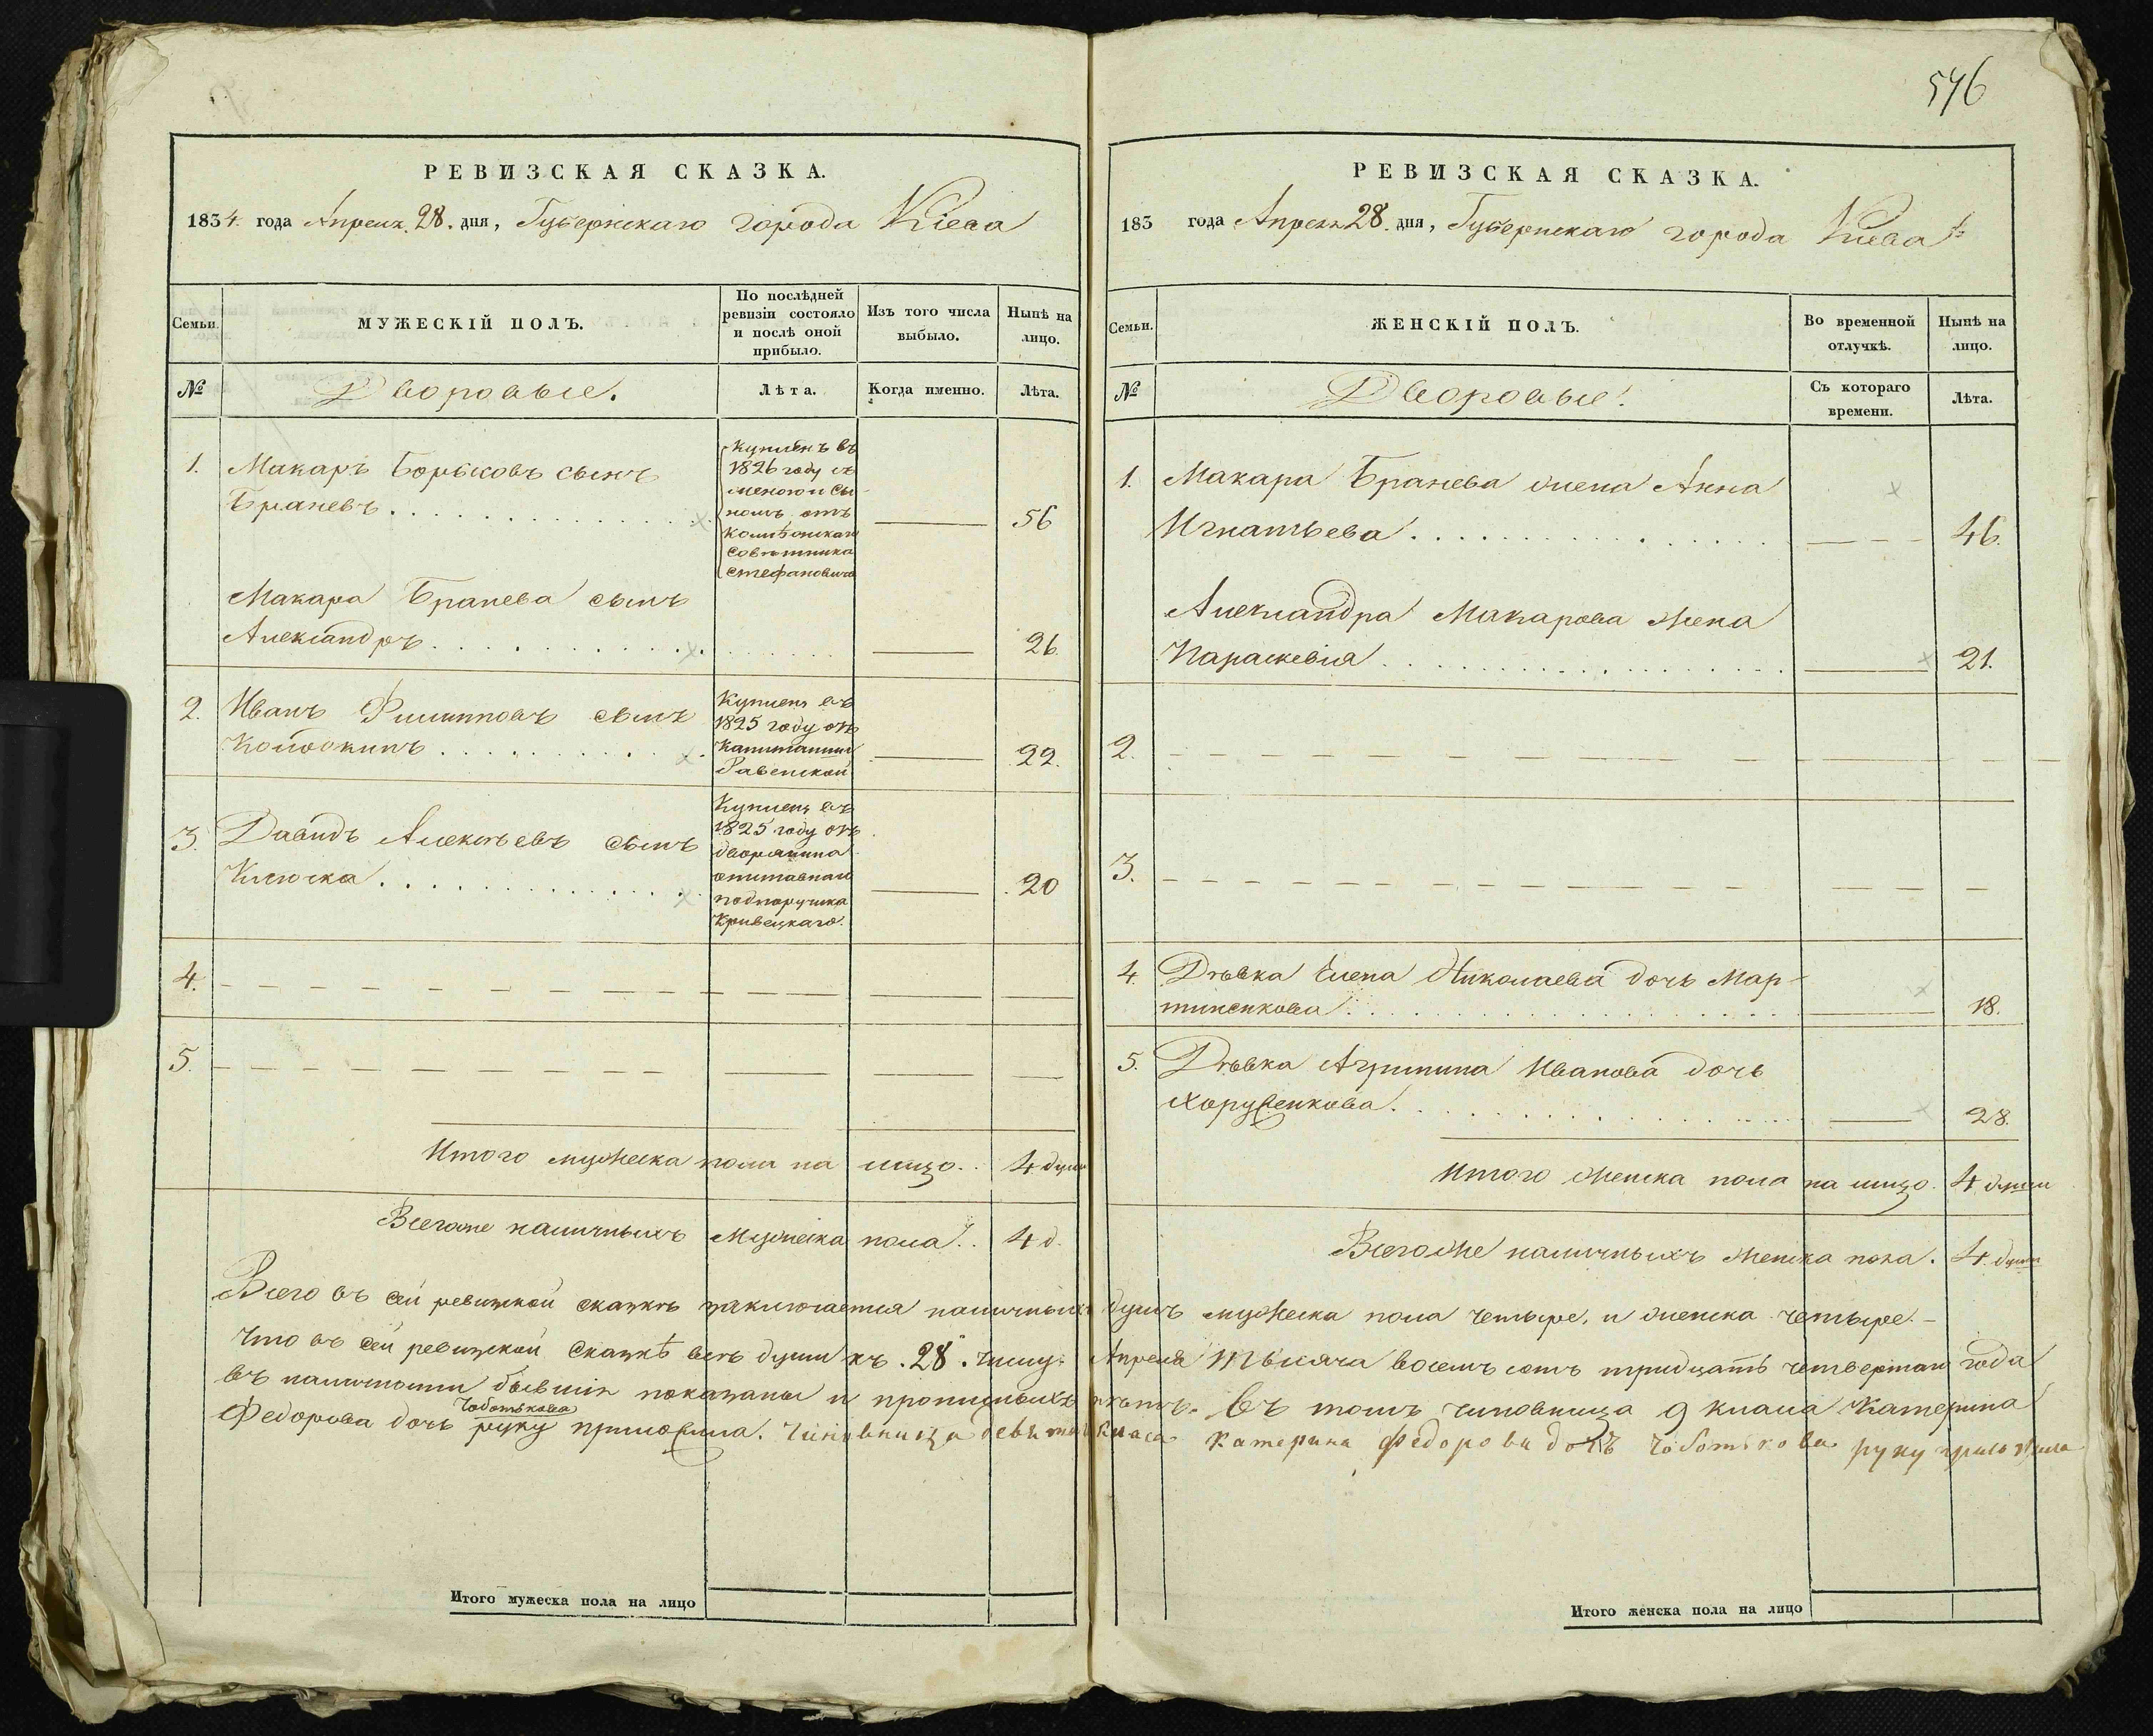 546
РЕВИЗСКАЯ СКАЗКА.
1834. года Апреля. 28. дня, Губернскаго города Кіева
Семьи.
МУЖЕСКІЙ ПОЛЪ.
По послѣдней
ревизіи состояло
и послѣ оной
прибыло.
Изъ того числа
выбыло.
Нынѣ на
лицо.
№
Дворовые.
Лѣта.
Когда именно.
Лѣта.
1. Макаръ Борисовъ сынъ
Браневъ
Купленъ въ
1826 году съ
женою и сы-
номъ отъ
Совѣтника
Стефановича
56
Макара Бранева сынъ
Александръ
26.
2. Иванъ Филипповъ сынъ
Купленъ въ
1825 году отъ
Капитанши
22.
3. Давидъ Алексѣевъ сынъ
Ключка
Купленъ въ
1825 году отъ
дворянина
отставнаго
подпоручика
Кривецкаго.
20
4.
5.
Итого мужеска пола на лицо.. 4 души
Всегоже наличныхъ мужеска пола.. 4 д.
РЕВИЗСКАЯ СКАЗКА.
183 года Апреля 28. дня, Губернскаго города Кіева
Семьи.
ЖЕНСКІЙ ПОЛЪ.
Во временной
отлучкѣ.
Нынѣ на
лицо.
№
Дворовые.
Съ котораго
времени.
Лѣта.
1. Макара Бранева жена Анна
Игнатьева
46.
Александра Макарова жена
Параскевія
21.
2.
3.
4. Дѣвка Елена Николаева дочь Мар-
тиненкова
18.
5. Дѣвка Агрипина Иванова дочь
Хоруженкова.
28.
Итого женска пола на лицо. 4 души
Всегоже наличныхъ женска пола. 4. души
Всего въ сей ревизской сказкѣ заключается наличныхъ душъ мужеска пола четыре, и женска четыре. –
Что въ сей ревизской Сказкѣ всѣ души къ. 28. числу Апреля тысяча восемъ сотъ тридцать четвертаго года
въ наличности бывшія показаны и прописныхъ нѣтъ. Въ томъ чиновница 9 класа Катерина
Федорова дочь Чоботькова руку приложила. Чиновница девятаго класа Катерина Федорова дочь Чоботькова руку приложила
Итого мужеска пола на лицо
Итого женска пола на лицо